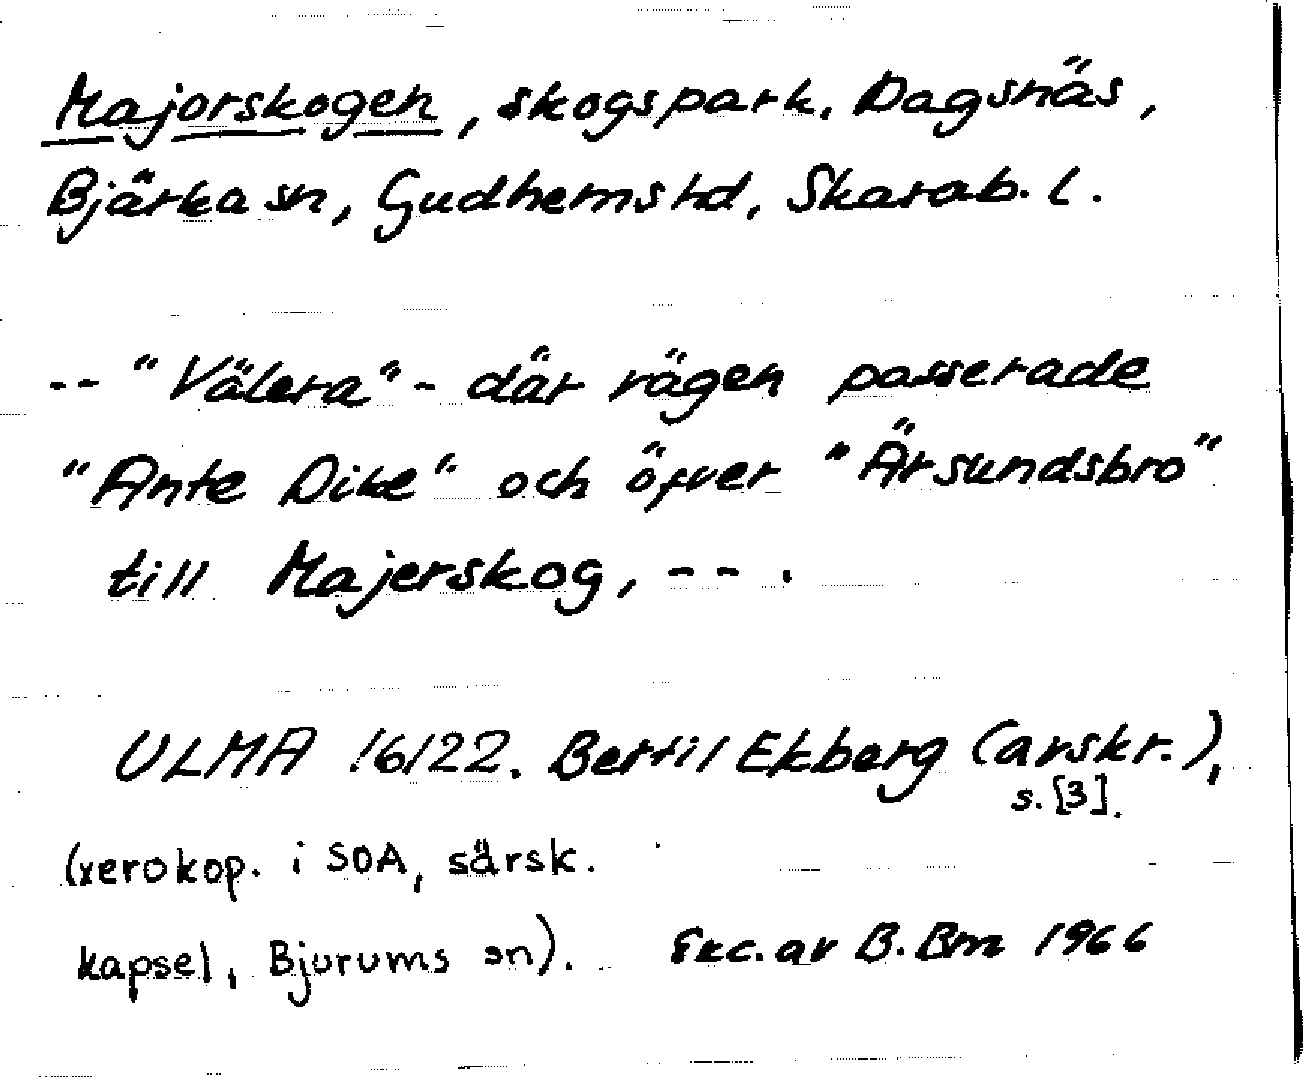 Majorskogen, skogspark, Dagsnäs,
Bjärka sn, Gudhems hd, Skarab. l.
-- "Välera" - där vägen passerade
"Ante Dike" och öfver "Ärsundsbro"
till Majerskog, -- .
ULMA 16122. Bertil Ekberg (avskr.),
s. [3].
(xerokop. i SOA, särsk.
kapsel, Bjurums sn). Exc. av B. Bm 1966